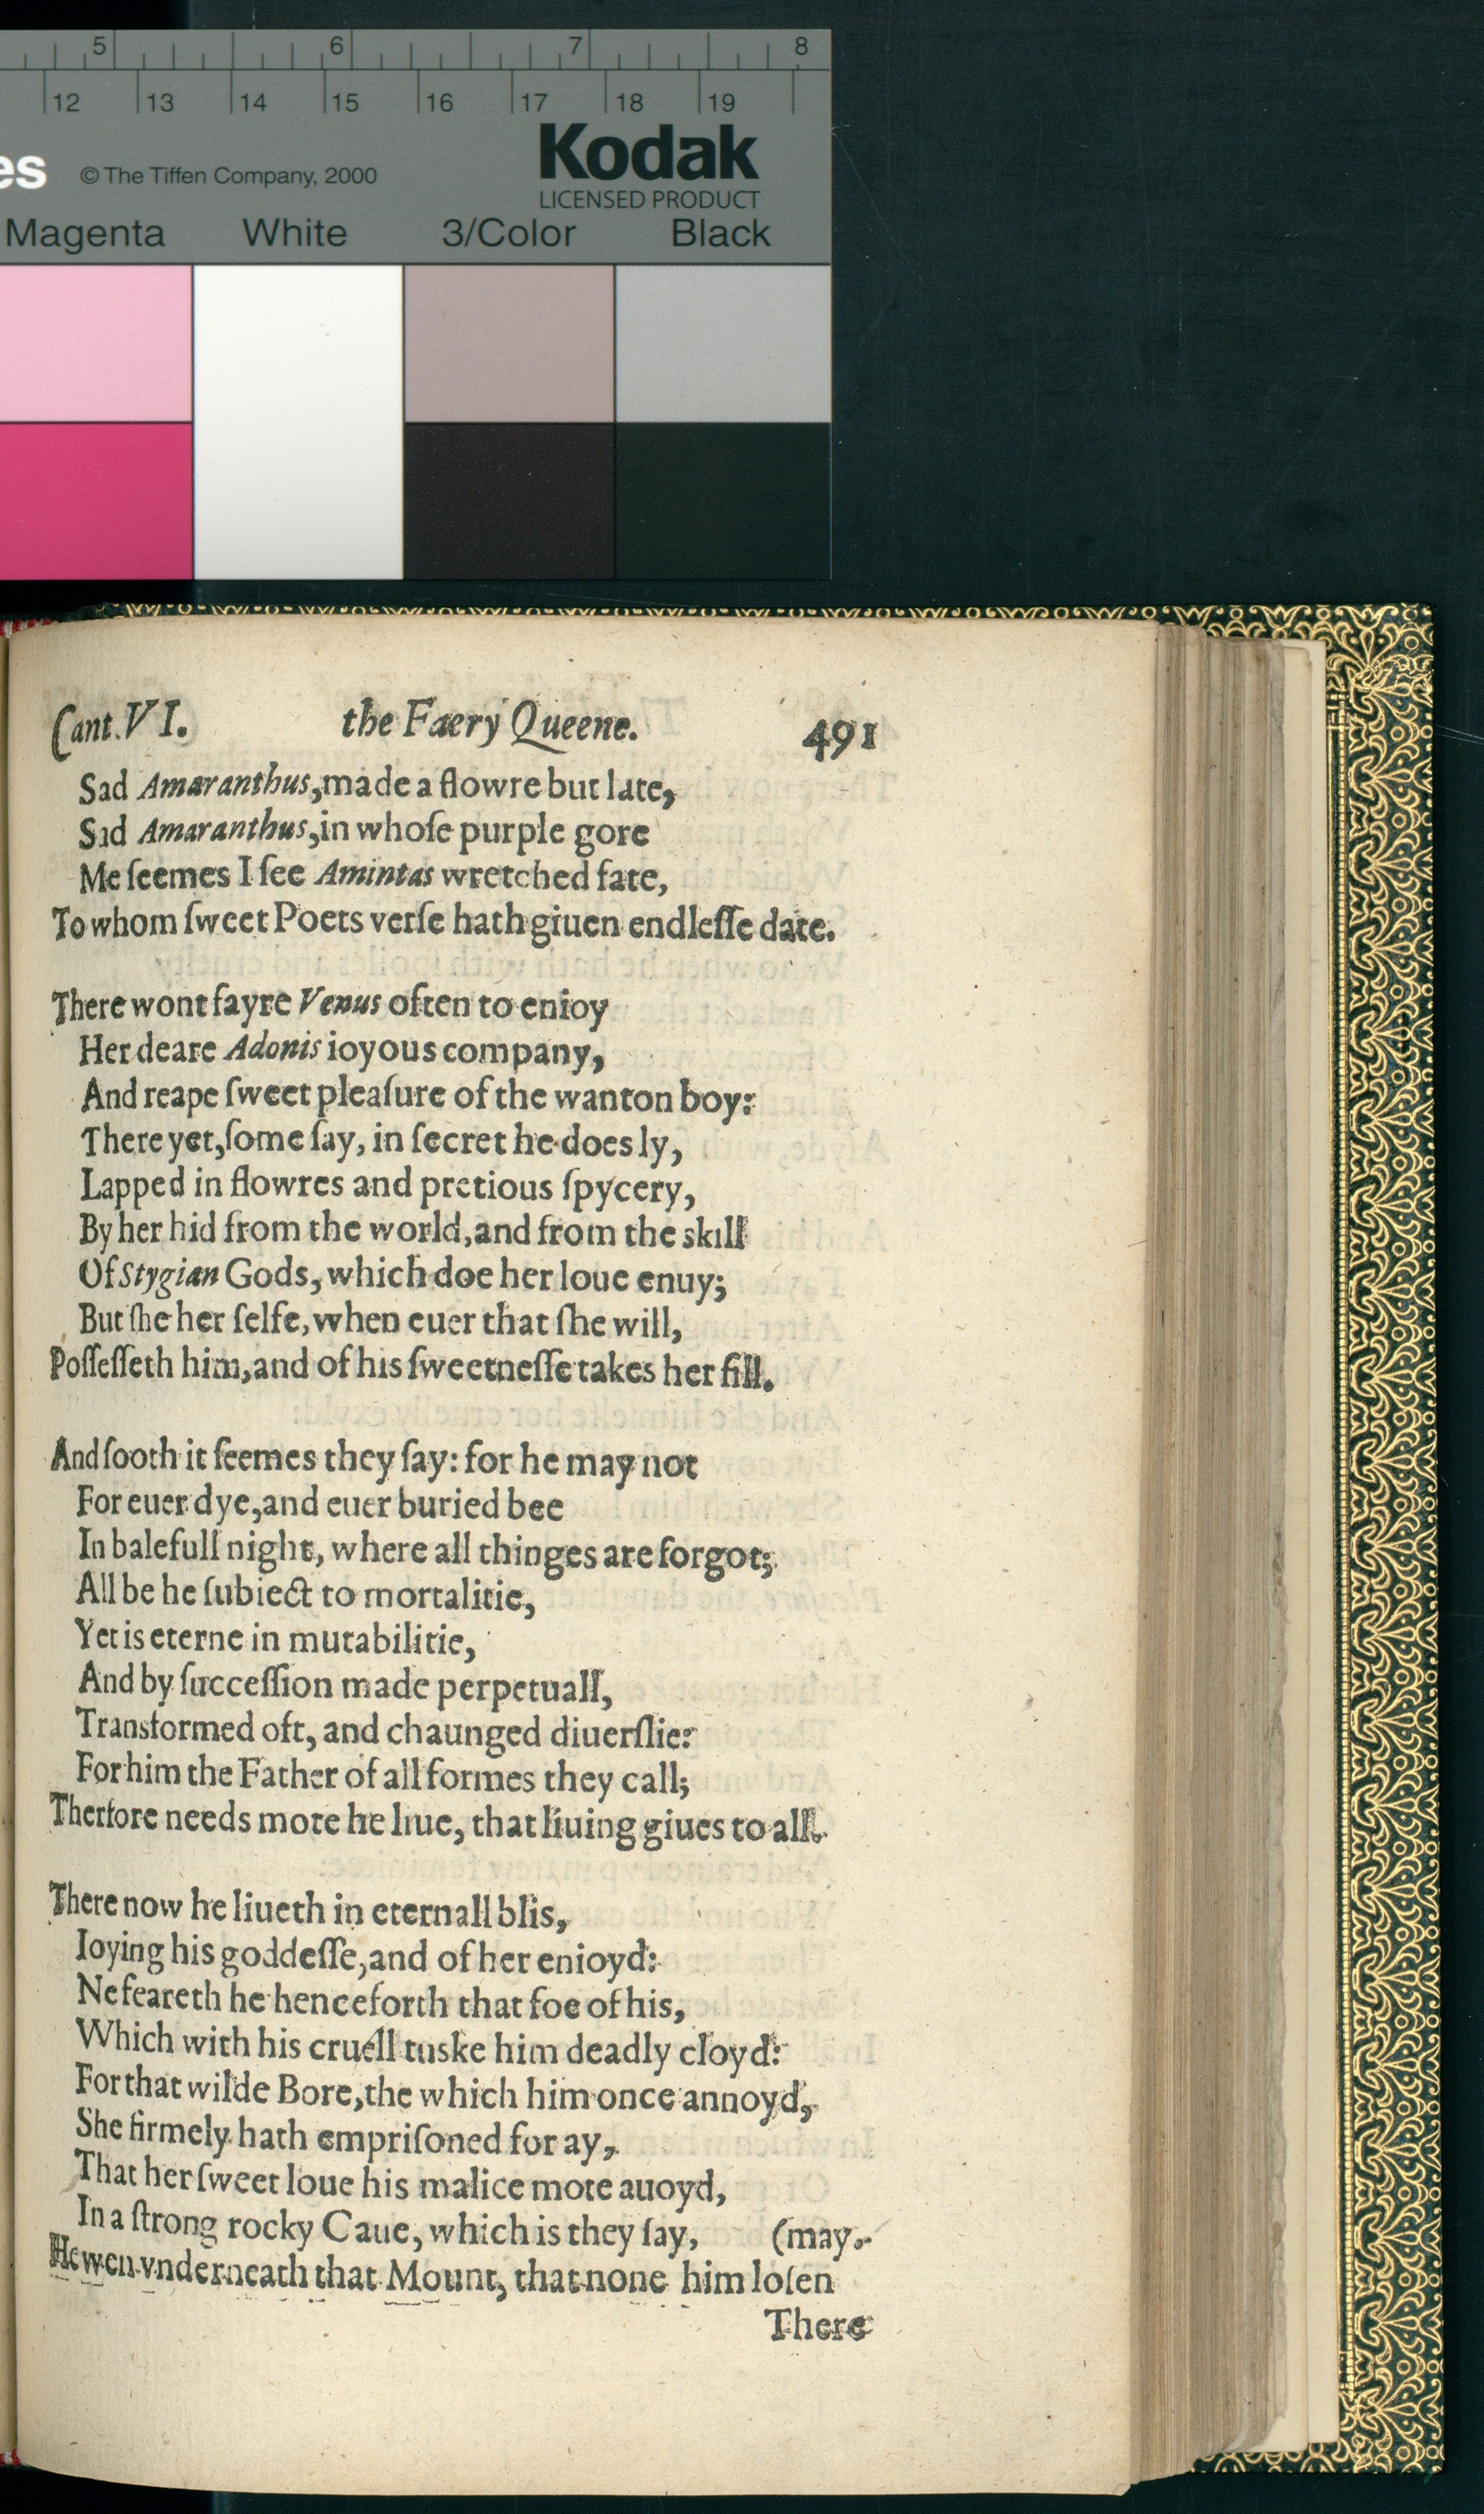 5 6 7 8
12 13 14 15 16 17 18 19
es © The Tiffen Company, 2000 Kodak
LICENSED PRODUCT
Magenta White 3/Color Black
Cant. VI. the Faery Queene. 491
Sad Amaranthus, made a flowre but late,
Sad Amaranthus, in whoſe purple gore
Me ſeemes I ſee Amintas wretched fate,
To whom ſweet Poets verſe hath giuen endleſſe date.
There wont fayre Venus often to enioy
Her deare Adonis ioyous company,
And reape ſweet pleaſure of the wanton boy:
There yet, ſome ſay, in ſecret he does ly,
Lapped in flowres and pretious ſpycery,
By her hid from the world, and from the skill
Of Stygian Gods, which doe her loue enuy;
But ſhe her ſelfe, when euer that ſhe will,
Poſſeſſeth him, and of his ſweetneſſe takes her fill.
And ſooth it ſeemes they ſay: for he may not
For euer dye, and euer buried bee
In balefull night, where all thinges are forgot;
All be he ſubiect to mortalitie,
Yet is eterne in mutabilitie,
And by ſucceſſion made perpetuall,
Transformed oft, and chaunged diuerſlie:
For him the Father of all formes they call;
Therfore needs mote he liue, that liuing giues to all.
There now he liueth in eternall blis,
Ioying his goddeſſe, and of her enioyd:
Ne feareth he henceforth that foe of his,
Which with his cruell tuske him deadly cloyd:
For that wilde Bore, the which him once annoyd,
She firmely hath empriſoned for ay,
That her ſweet loue his malice mote auoyd,
In a ſtrong rocky Caue, which is they ſay, (may.
Hewen vnderneath that Mount, that none him loſen
There